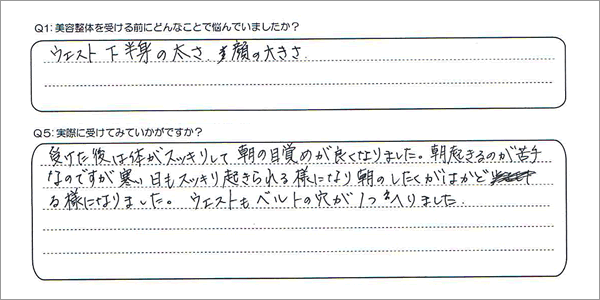 Q1: 美容整体を受ける前にどんなことで悩んでいましたか？
ウエスト 下半身の太さ 顔の大きさ
Q5: 実際に受けてみていかがですか？
受けた後は体がスッキリして 朝の目覚めが良くなりました。朝起きるのが苦手
なのですが寒い日もスッキリ起きられる様になり朝のしたくがはかど
る様になりました。 ウエストもベルトの穴が1つへりました